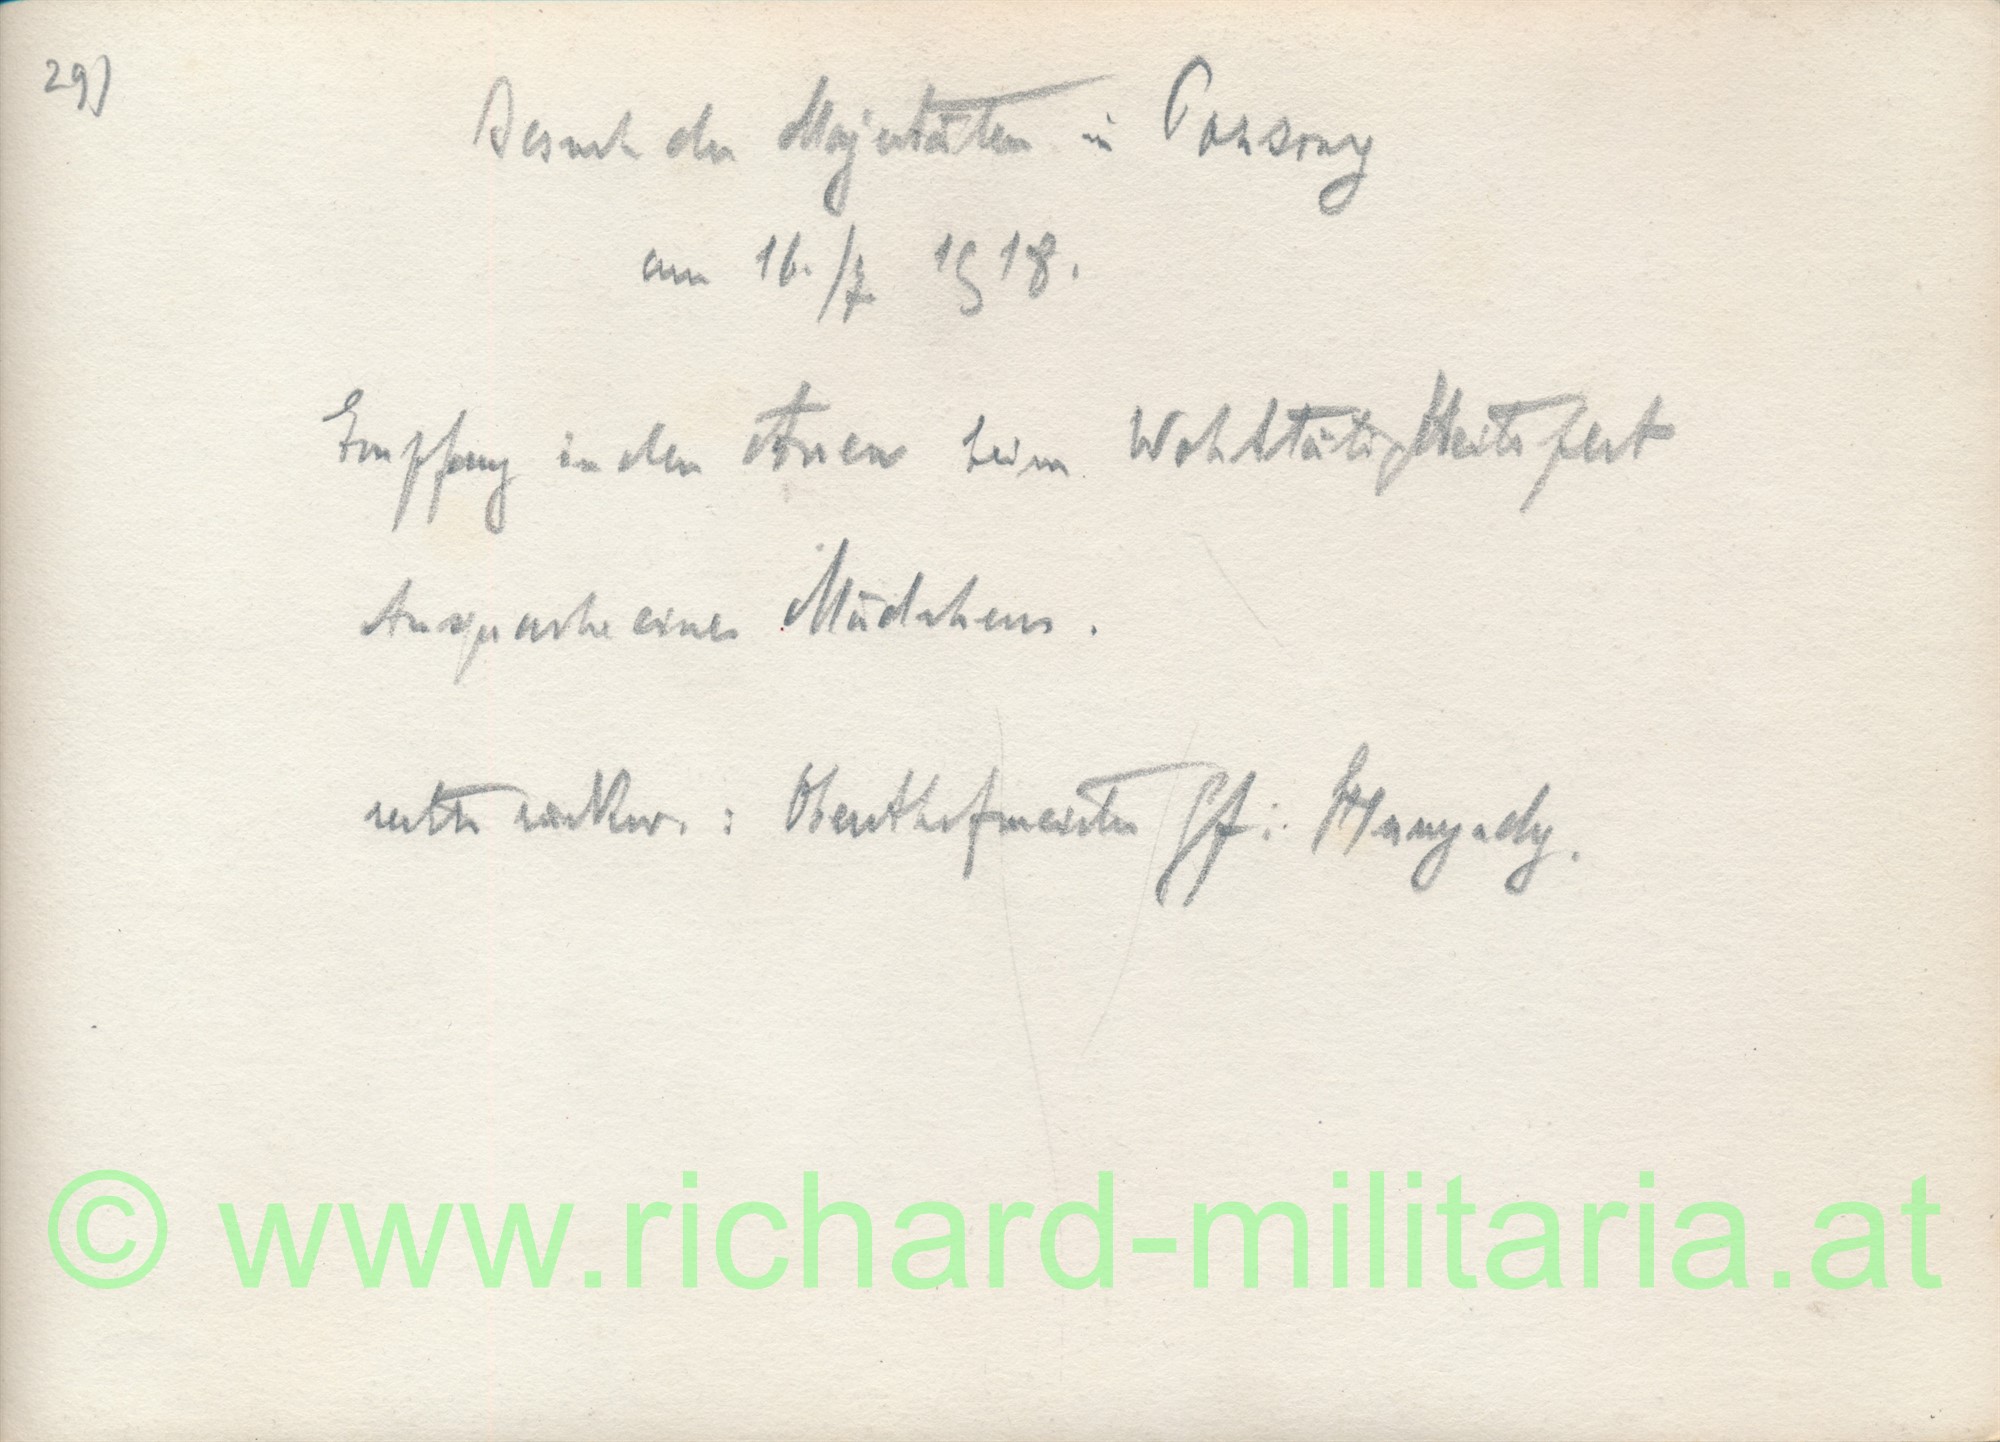 29)
Besuch der Majestäten in Pozsony
am 16./7. 1918.
Empfang in den Auen beim Wohltätigkeitsfest
Ansprache eines Mädchens.
rechts : Obersthofmeister Gf: Hunyady.
© www.richard-militaria.at